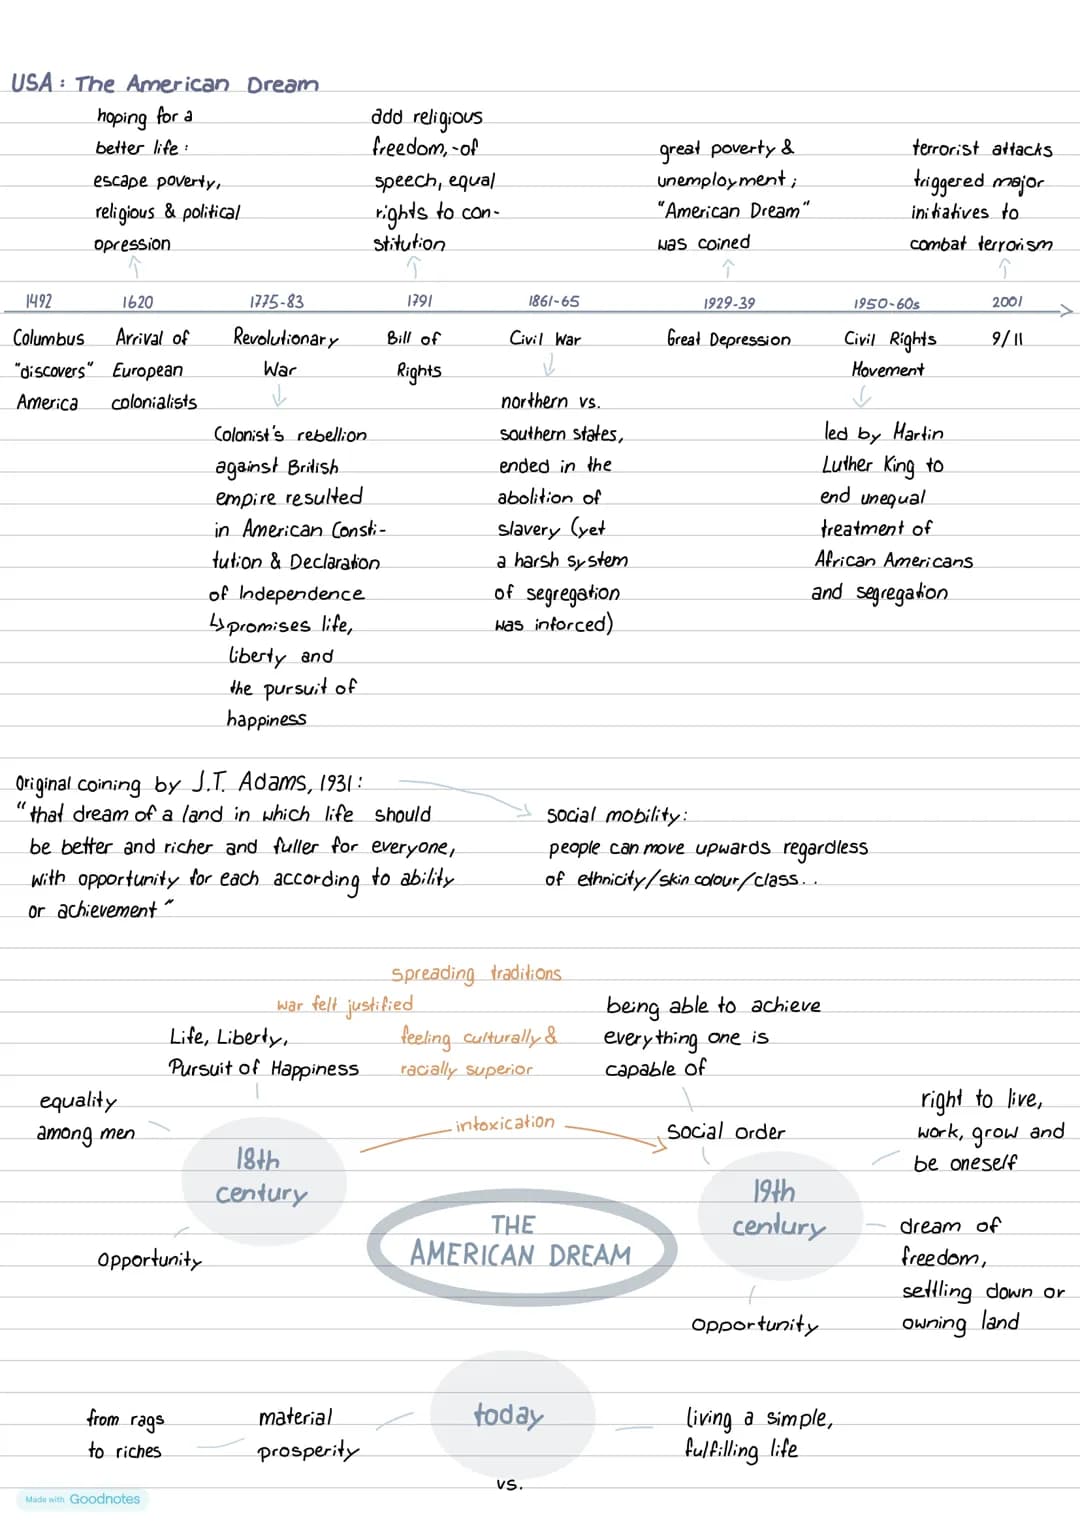 USA: The American Dream
hoping for a
better life:
escape poverty,
religious & political
opression
add religious
freedom, -of
speech, equal
rights to con-
stitution
great poverty &
unemployment;
"American Dream"
was coined
terrorist attacks
triggered major
initiatives to
combat terrorism
1492
1620
1775-83
1791
1861-65
1929-39
1950-60s
2001
Columbus
"discovers"
America
Arrival of
European
colonialists
Revolutionary
War
Colonist's rebellion
against British
empire resulted
in American Consti-
tution & Declaration
of Independence
↳ promises life,
liberty and
the pursuit of
happiness
Bill of
Rights
Civil War
northern vs.
southern states,
ended in the
abolition of
slavery (yet
a harsh system
of segregation
was inforced)
Great Depression
Civil Rights
Movement
led by Martin
Luther King to
end unequal
treatment of
African Americans
and segregation
9/11
Original coining by J.T. Adams, 1931:
"that dream of a land in which life should
be better and richer and fuller for everyone,
with opportunity for each according to ability
or achievement"
social mobility:
people can move upwards regardless
of ethnicity/skin colour/class...
spreading traditions
war felt justified
feeling culturally &
racially superior
intoxication
Life, Liberty,
Pursuit of Happiness
equality
among men
18th
century
Opportunity
THE
AMERICAN DREAM
being able to achieve
everything one is
capable of
social order
19th
century
right to live,
work, grow and
be oneself
dream of
freedom,
settling down or
owning land
opportunity
today
from rags
to riches
material
prosperity
living a simple,
fulfilling life
vs.
Made with Goodnotes